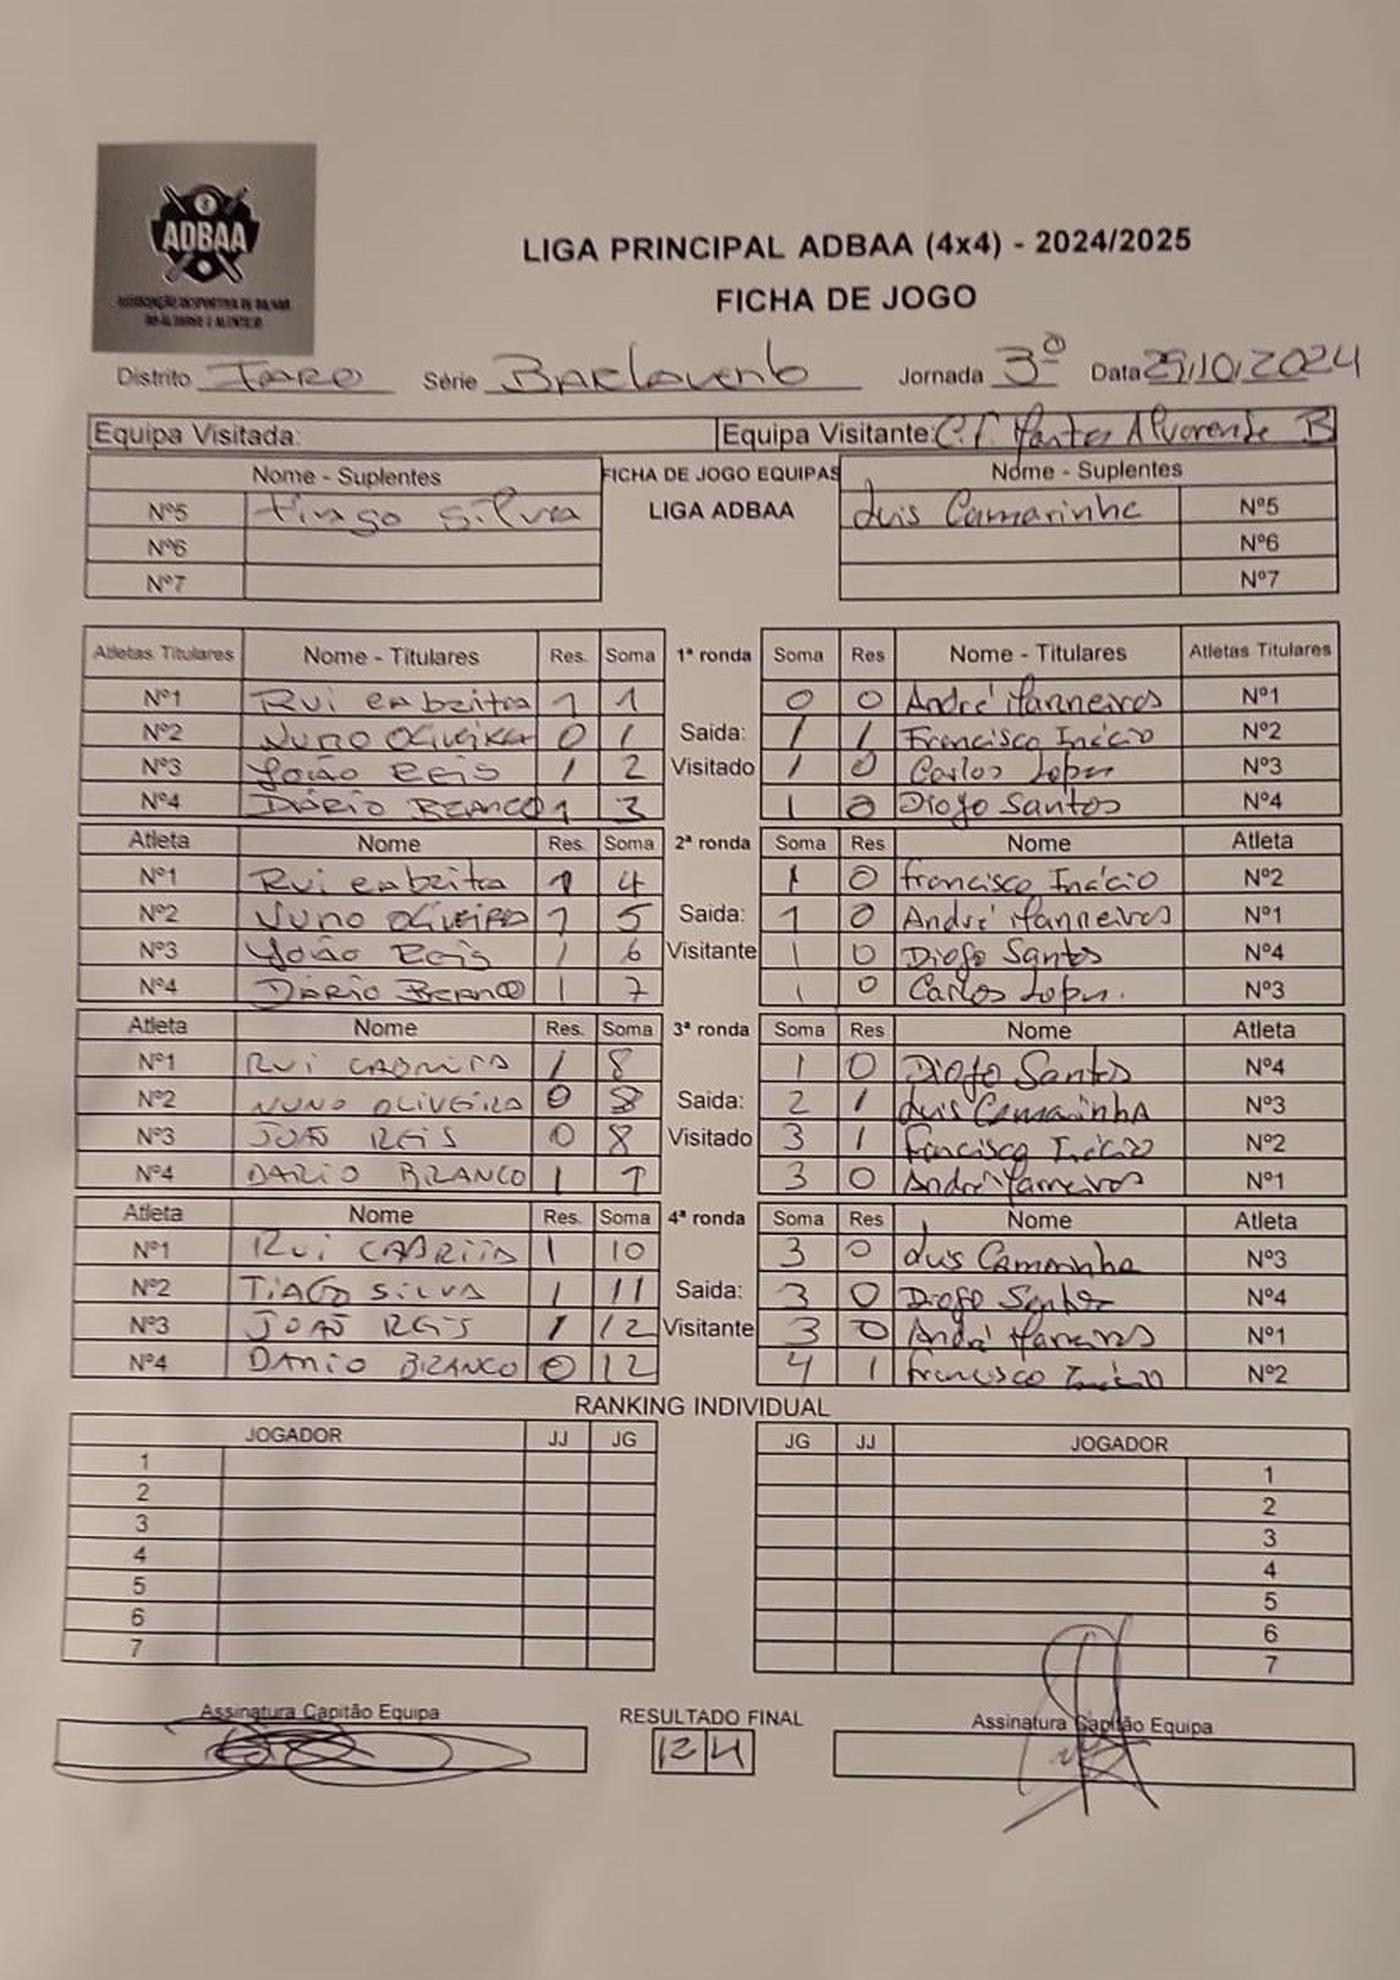 ADBAA
ASSOCIAÇÃO DESPORTIVA DE BILHAR
DO ALGARVE E ALENTEJO
LIGA PRINCIPAL ADBAA (4x4) - 2024/2025
FICHA DE JOGO
Distrito Faro Série Barlavento Jornada 3º Data 29/10/2024
Equipa Visitada: Equipa Visitante: C.T. Alvorense B
Nome - Suplentes FICHA DE JOGO EQUIPAS Nome - Suplentes
Nº5 Tiago Silva LIGA ADBAA Luis Camarinha Nº5
Nº6 Nº6
Nº7 Nº7
Atletas Titulares Nome - Titulares Res. Soma 1ª ronda Soma Res Nome - Titulares Atletas Titulares
Nº1 Rui Cabrita 1 1 0 0 André Marreiros Nº1
Nº2 Nuno Oliveira 0 1 Saida: 1 1 Francisco Inácio Nº2
Nº3 João Reis 1 2 Visitado 1 0 Carlos Lopes Nº3
Nº4 Dário Branco 1 3 1 0 Diogo Santos Nº4
Atleta Nome Res. Soma 2ª ronda Soma Res Nome Atleta
Nº1 Rui Cabrita 1 4 1 0 Francisco Inácio Nº2
Nº2 Nuno Oliveira 1 5 Saida: 1 0 André Marreiros Nº1
Nº3 João Reis 1 6 Visitante 1 0 Diogo Santos Nº4
Nº4 Dário Branco 1 7 1 0 Carlos Lopes. Nº3
Atleta Nome Res. Soma 3ª ronda Soma Res Nome Atleta
Nº1 RUI CABRITA 1 8 1 0 Diogo Santos Nº4
Nº2 NUNO OLIVEIRA 0 8 Saida: 2 1 Luis Camarinha Nº3
Nº3 JOÃO REIS 0 8 Visitado 3 1 Francisco Inácio Nº2
Nº4 DARIO BRANCO 1 9 3 0 André Marreiros Nº1
Atleta Nome Res. Soma 4ª ronda Soma Res Nome Atleta
Nº1 RUI CABRITA 1 10 3 0 Luis Camarinha Nº3
Nº2 TIAGO SILVA 1 11 Saida: 3 0 Diogo Santos Nº4
Nº3 JOÃO REIS 1 12 Visitante 3 0 André Marreiros Nº1
Nº4 DARIO BRANCO 0 12 4 1 Francisco Inácio Nº2
RANKING INDIVIDUAL
JOGADOR JJ JG JG JJ JOGADOR
1 1
2 2
3 3
4 4
5 5
6 6
7 7
Assinatura Capitão Equipa RESULTADO FINAL Assinatura Capitão Equipa
12 4